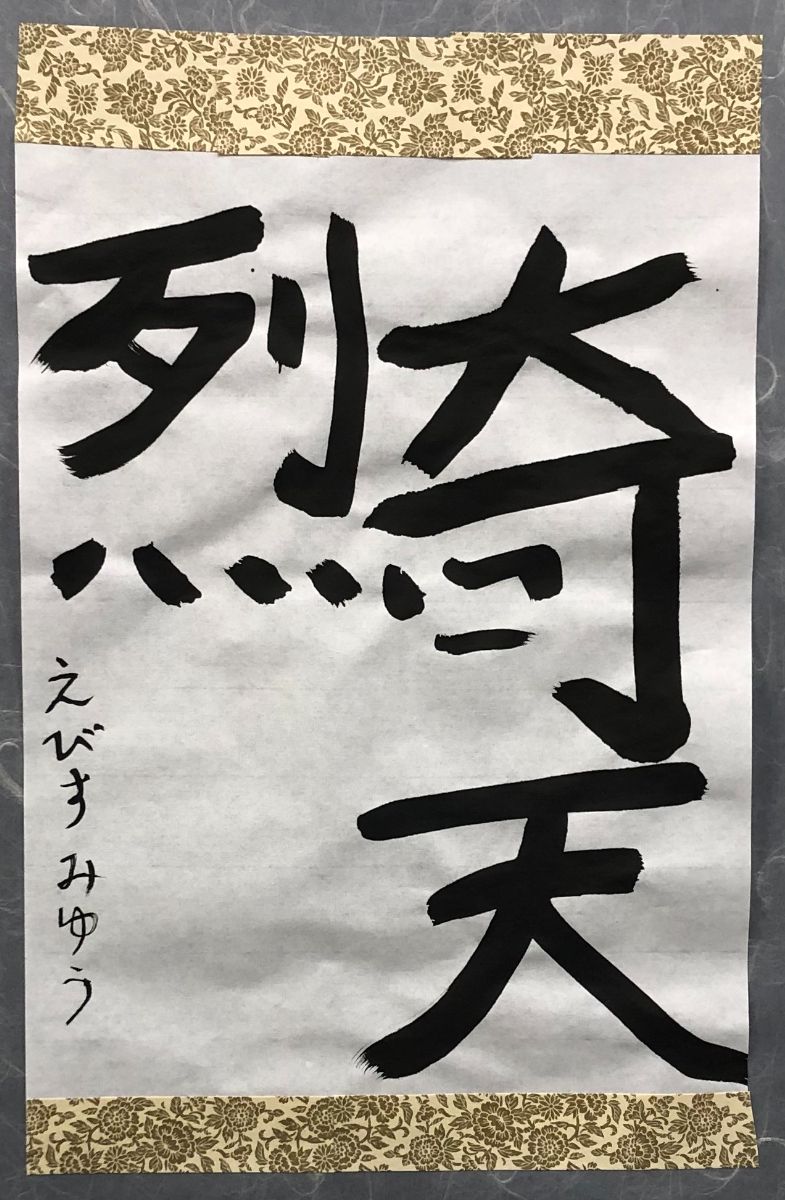 奇天
烈
えびす みゆう